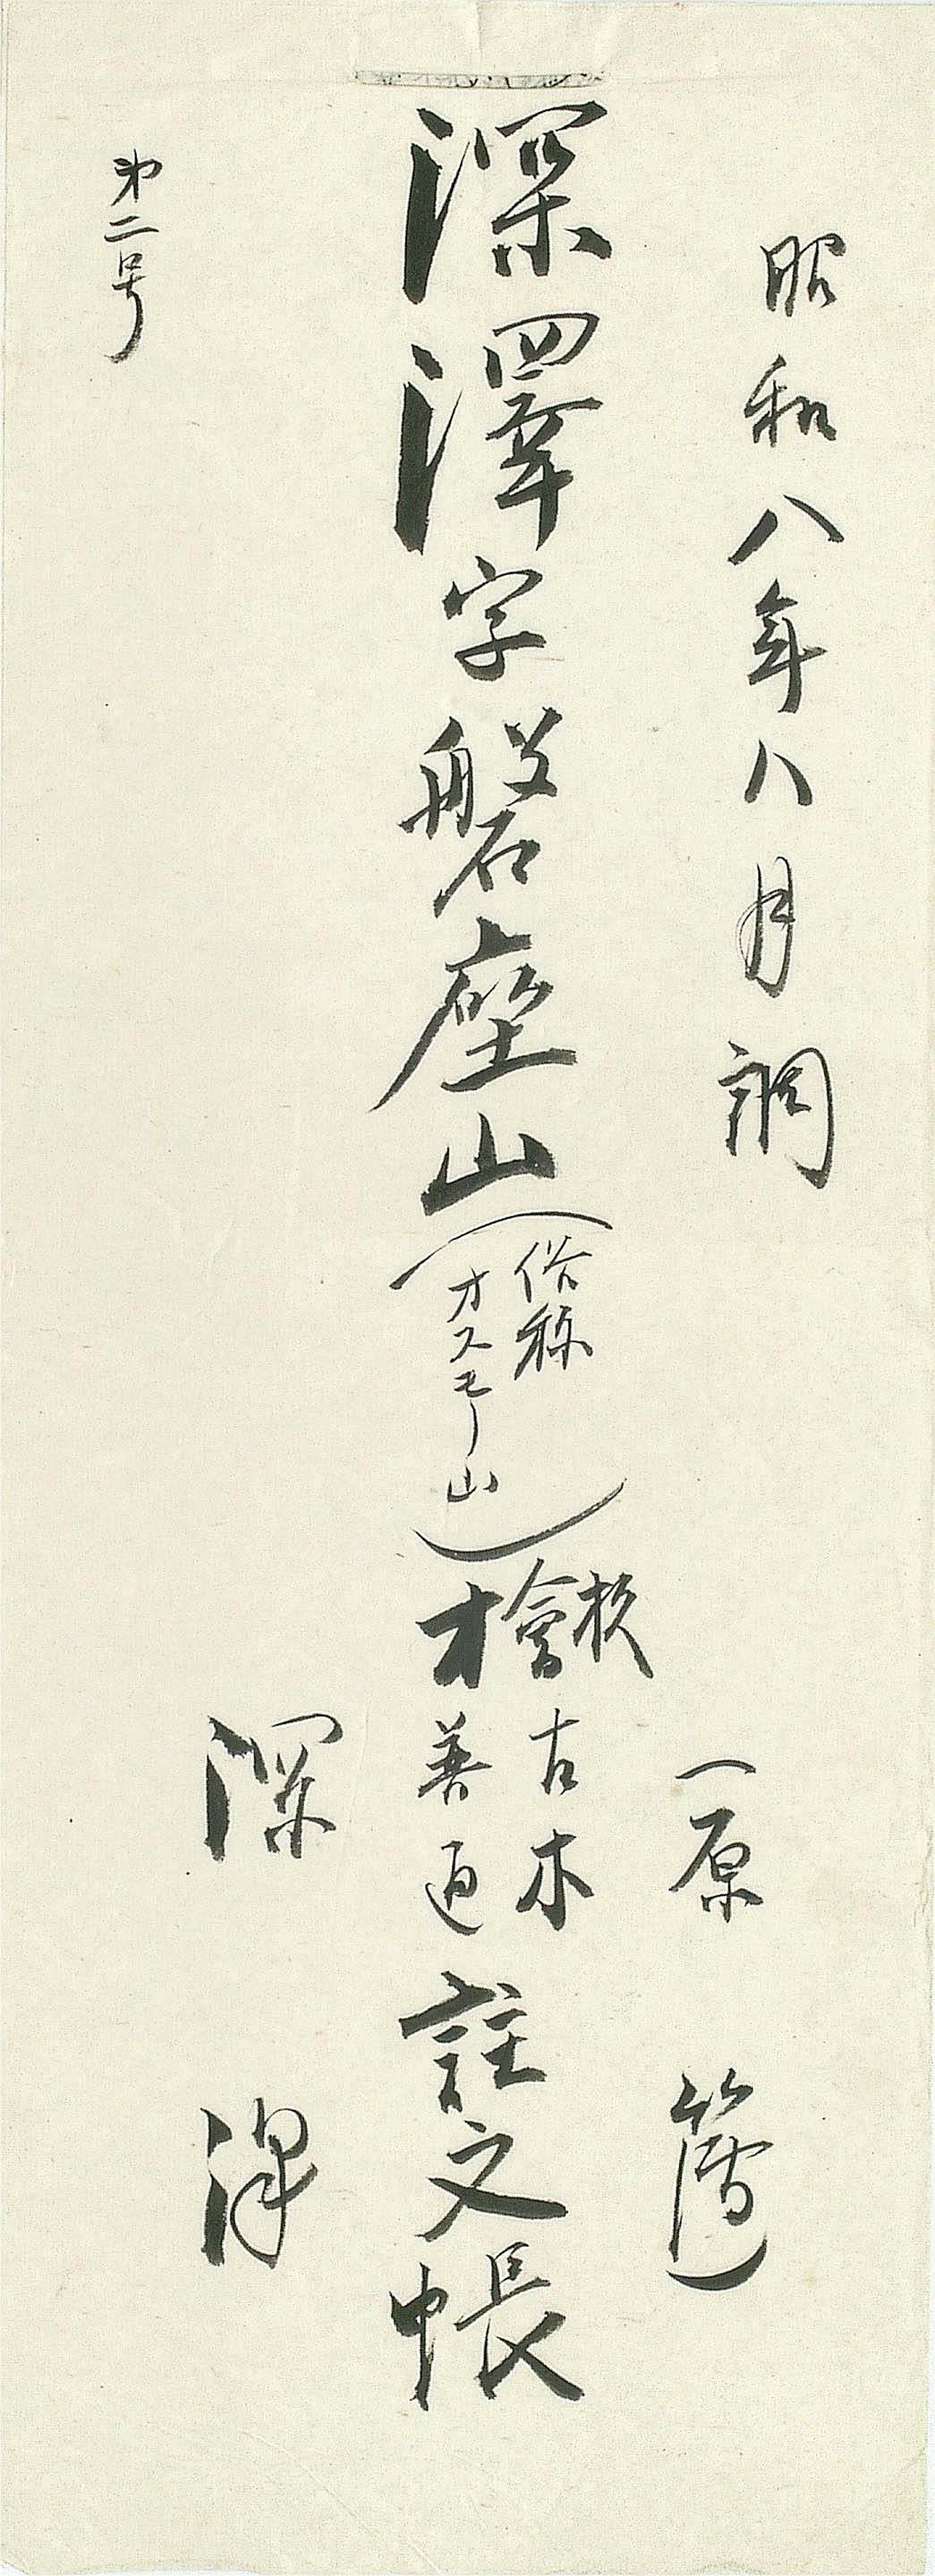 昭和八年八月調
（原簿）
深澤字磐座山（俗称オスモー山）杦檜古木普通註文帳
深澤
㐧二号